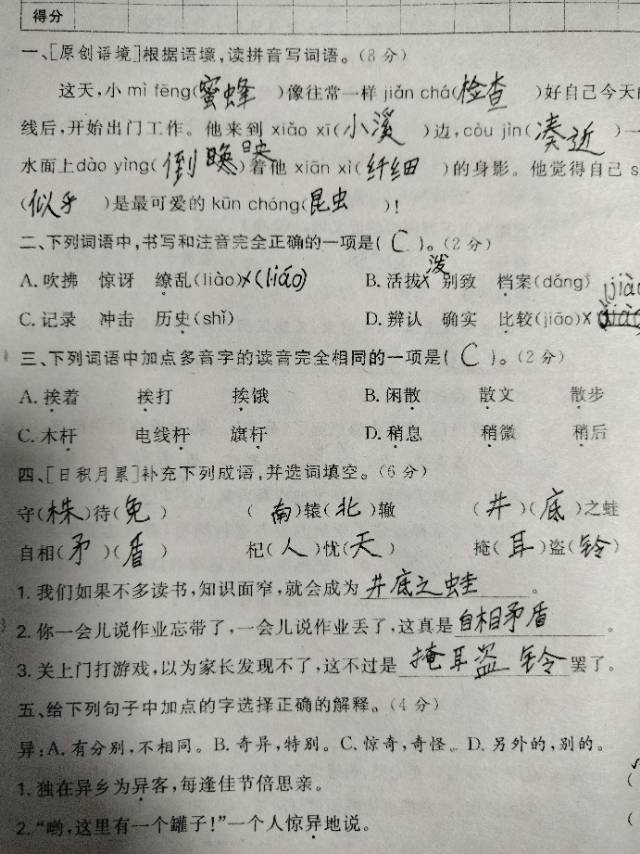 得分
一、[原创语境]根据语境,读拼音写词语。(8分)
这天,小 mì fēng(蜜蜂)像往常一样 jiǎn chá(检查)好自己今天
线后,开始出门工作。他来到 xiǎo xī(小溪)边,còu jìn(凑近)一
水面上dào yìng(倒映)着他 xiān xì(纤细)的身影。他觉得自己 s
(似乎)是最可爱的 kūn chóng(昆虫)!
二、下列词语中,书写和注音完全正确的一项是(C)。(2分)
A. 吹拂 惊讶 缭乱(liào)×(liáo) B. 活拔×泼 别致 档案(dǎng)
C. 记录 冲击 历史(shǐ) D. 辨认 确实 比较(jiāo)×
三、下列词语中加点多音字的读音完全相同的一项是(C)。(2分)
A. 挨着 挨打 挨饿 B. 闲散 散文 散步
C. 木杆 电线杆 旗杆 D. 稍息 稍微 稍后
四、[日积月累]补充下列成语,并选词填空。(6分)
守(株)待(兔) (南)辕(北)辙 (井)(底)之蛙
自相(矛)(盾) 杞(人)忧(天) 掩(耳)盗(铃)
1. 我们如果不多读书,知识面窄,就会成为井底之蛙。
2. 你一会儿说作业忘带了,一会儿说作业丢了,这真是自相矛盾。
3. 关上门打游戏,以为家长发现不了,这不过是掩耳盗铃罢了。
五、给下列句子中加点的字选择正确的解释。(4分)
异:A. 有分别,不相同。B. 奇异,特别。C. 惊奇,奇怪。D. 另外的,别的。
1. 独在异乡为异客,每逢佳节倍思亲。 (
2. “哟,这里有一个罐子!”一个人惊异地说。 (